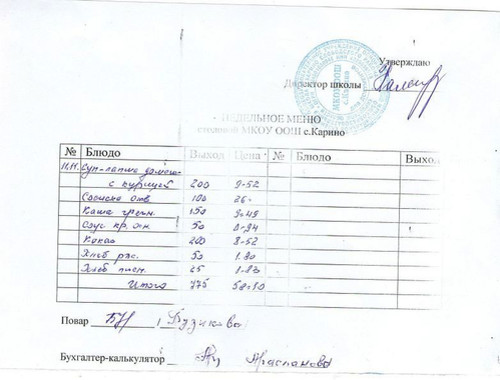 Утверждаю
Директор школы
МКОУ ООШ
с.Карино
НЕДЕЛЬНОЕ МЕНЮ
столовой МКОУ ООШ с.Карино
№ Блюдо Выход Цена № Блюдо Выход
Суп-лапша домашн.
с курицей 200 9-52
Сосиска отв. 100 26-
Каша гречн. 150 9-49
Соус кр. осн. 50 0-94
Какао 200 8-52
Хлеб рж. 50 1.80
Хлеб пшен. 25 1-83
Итого 775 58-10
Повар
Бухгалтер-калькулятор